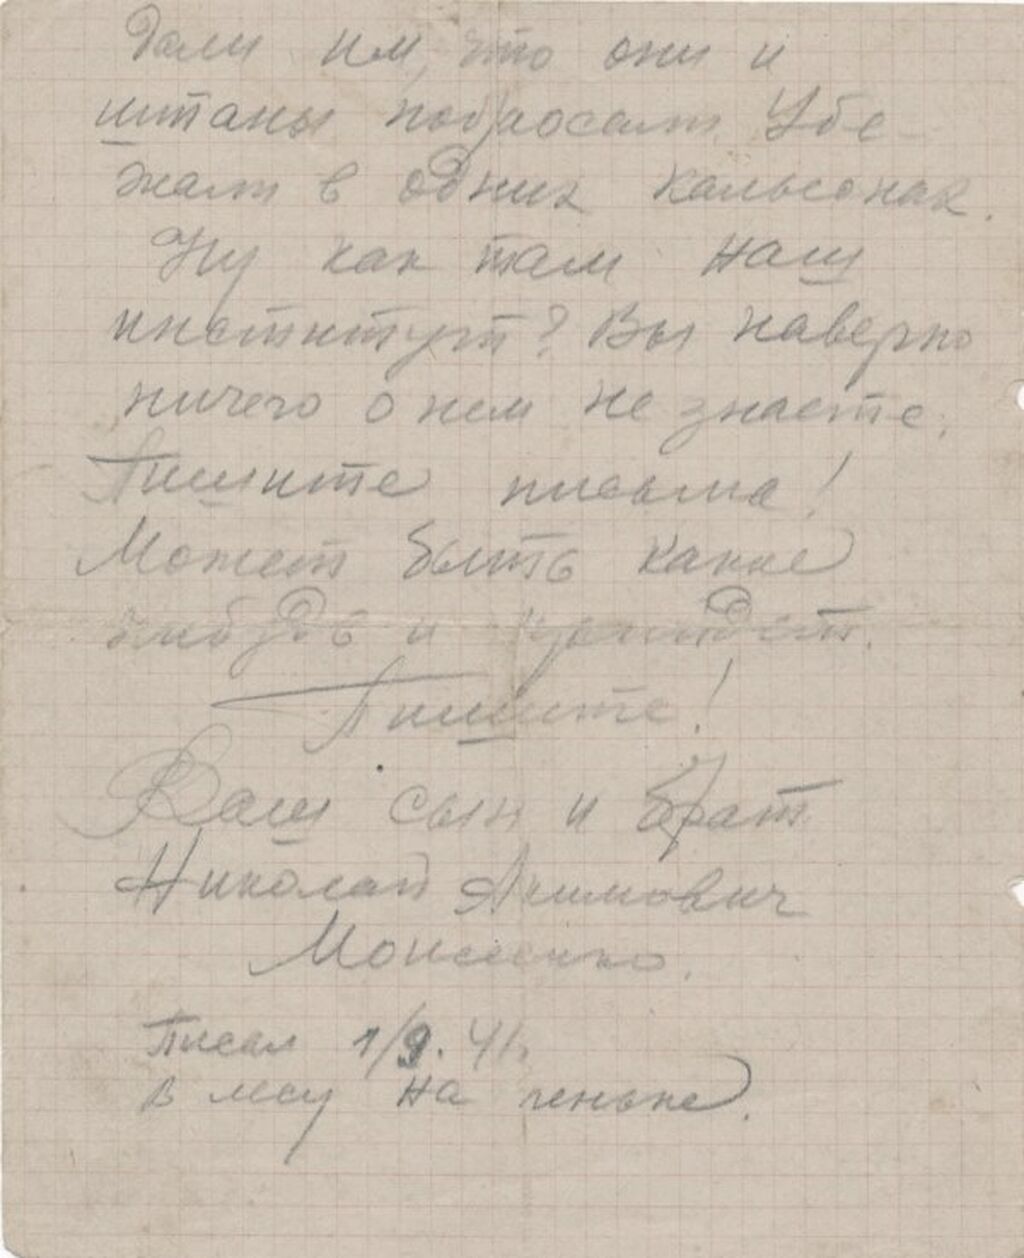 Дали им, что они и
штаны побросали. Убе-
жали в одних кальсонах.
Ну как там наш
институт? Вы наверно
ничего о нем не знаете.
Пишите письма!
Может быть какие
нибудь и прийдет.
Пишите!
Ваш сын и брат
Николай Акимович
Писал 1/9. 41г.
в лесу на пеньке.